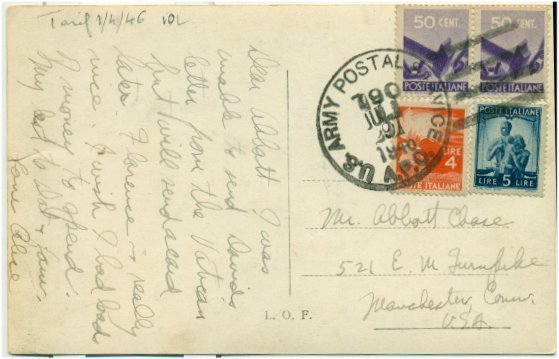 Tarif 1/4/46 10L
Dear Abbott I was
unable to send David's
letter from the Vatican
but will send a card
later. Florence is really
nice. I wish I had loads
of money to spend.
My best to Dot & fam.
50 CENT. 50 CENT.
POSTE ITALIANE POSTE ITALIANE
U.S. ARMY POSTAL SERVICE
A.P.O.
790
JUL
19
LIRE
4
POSTE ITALIANE
POSTE ITALIANE
LIRE 5 LIRE
Mr. Abbott Chase
521 E. M Turnpike
Manchester, Conn.
USA.
L. O. F.